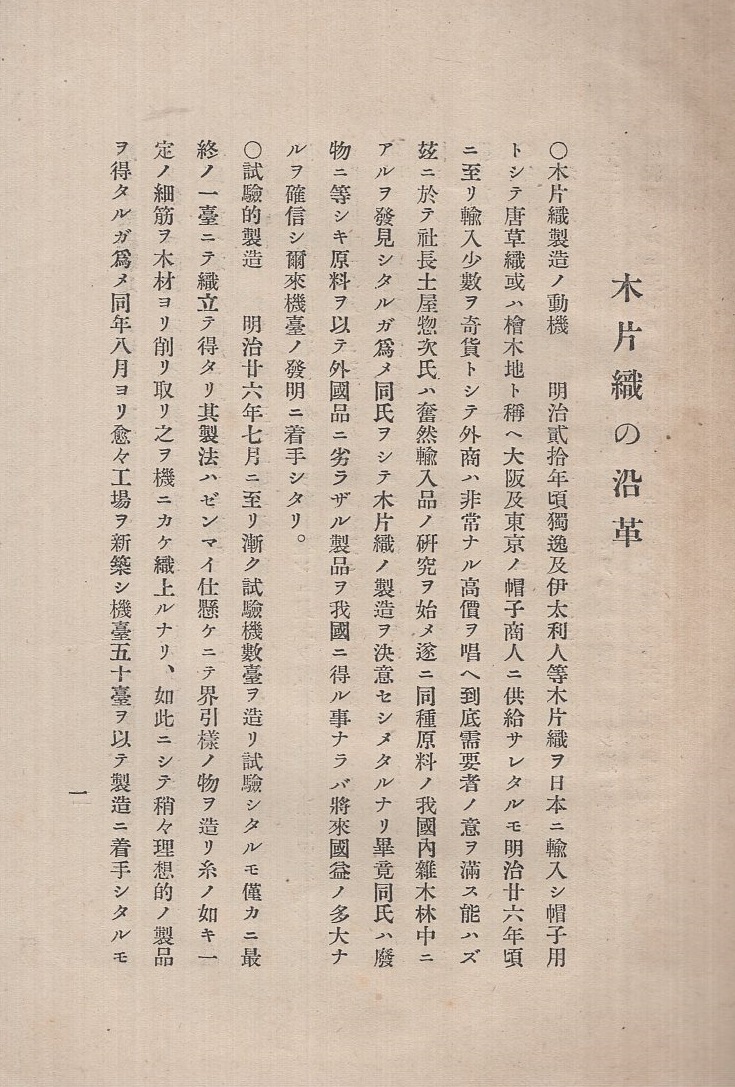 木片織の沿革
〇木片織製造ノ動機　明治貳拾年頃獨逸及伊太利人等木片織ヲ日本ニ輸入シ帽子用
トシテ唐草織或ハ檜木地ト稱ヘ大阪及東京ノ帽子商人ニ供給サレタルモ明治廿六年頃
ニ至リ輸入少數ヲ奇貨トシテ外商ハ非常ナル高價ヲ唱ヘ到底需要者ノ意ヲ滿ス能ハズ
玆ニ於テ社長土屋惣次氏ハ奮然輸入品ノ硏究ヲ始メ遂ニ同種原料ノ我國內雜木林中ニ
アルヲ發見シタルガ爲メ同氏ヲシテ木片織ノ製造ヲ決意セシメタルナリ畢竟同氏ハ廢
物ニ等シキ原料ヲ以テ外國品ニ劣ラザル製品ヲ我國ニ得ル事ナラバ將來國益ノ多大ナ
ルヲ確信シ爾來機臺ノ發明ニ着手シタリ。
〇試驗的製造　明治廿六年七月ニ至リ漸ク試驗機數臺ヲ造リ試驗シタルモ僅カニ最
終ノ一臺ニテ織立テ得タリ其製法ハゼンマイ仕懸ケニテ界引樣ノ物ヲ造リ糸ノ如キ一
定ノ細筋ヲ木材ヨリ削リ取リ之ヲ機ニカケ織上ルナリ、如此ニシテ稍々理想的ノ製品
ヲ得タルガ爲メ同年八月ヨリ愈々工場ヲ新築シ機臺五十臺ヲ以テ製造ニ着手シタルモ
一